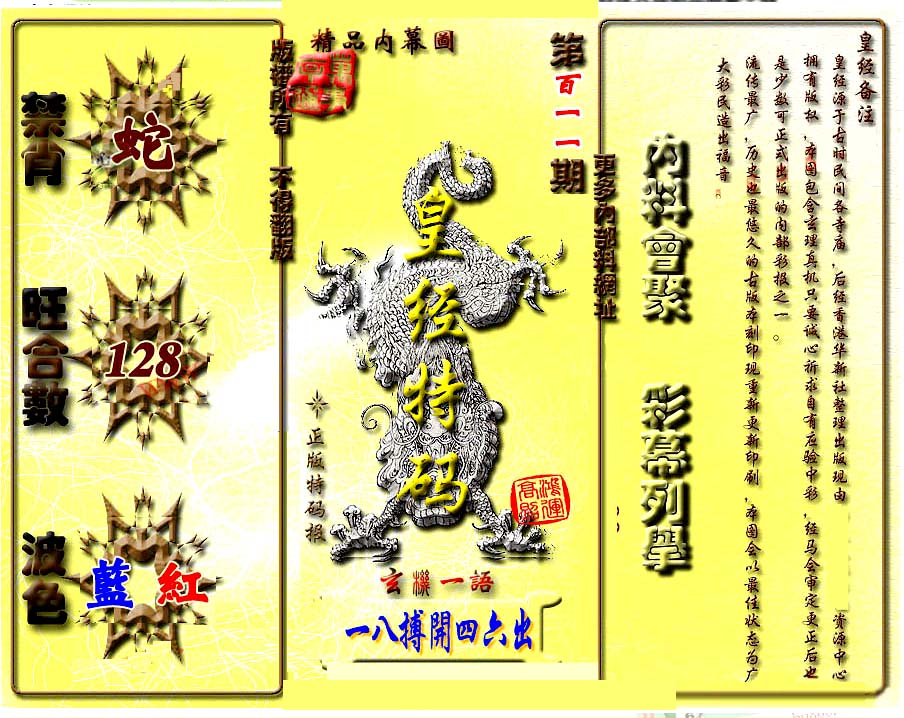 禁肖
蛇
旺合數
128
波色
藍 紅
版權所有 不得翻版
精品内幕圖
第百一一期
更多内部料網址
皇经特码
正版特码报
鴻運
高照
玄機一語
一八搏開四六出
内料會聚 彩幕列舉
皇经备注
皇经源于古时民间各寺庙，后经香港华新社整理出版现由 资源中心
拥有版权，本图包含玄理真机只要诚心祈求自有应验中彩，经马会审定更正后也
是少数可正式出版的内部彩报之一。
流传最广，历史也最悠久的古版本刻印现重新更新印刷，本图会以最佳状态为广
大彩民造出福音